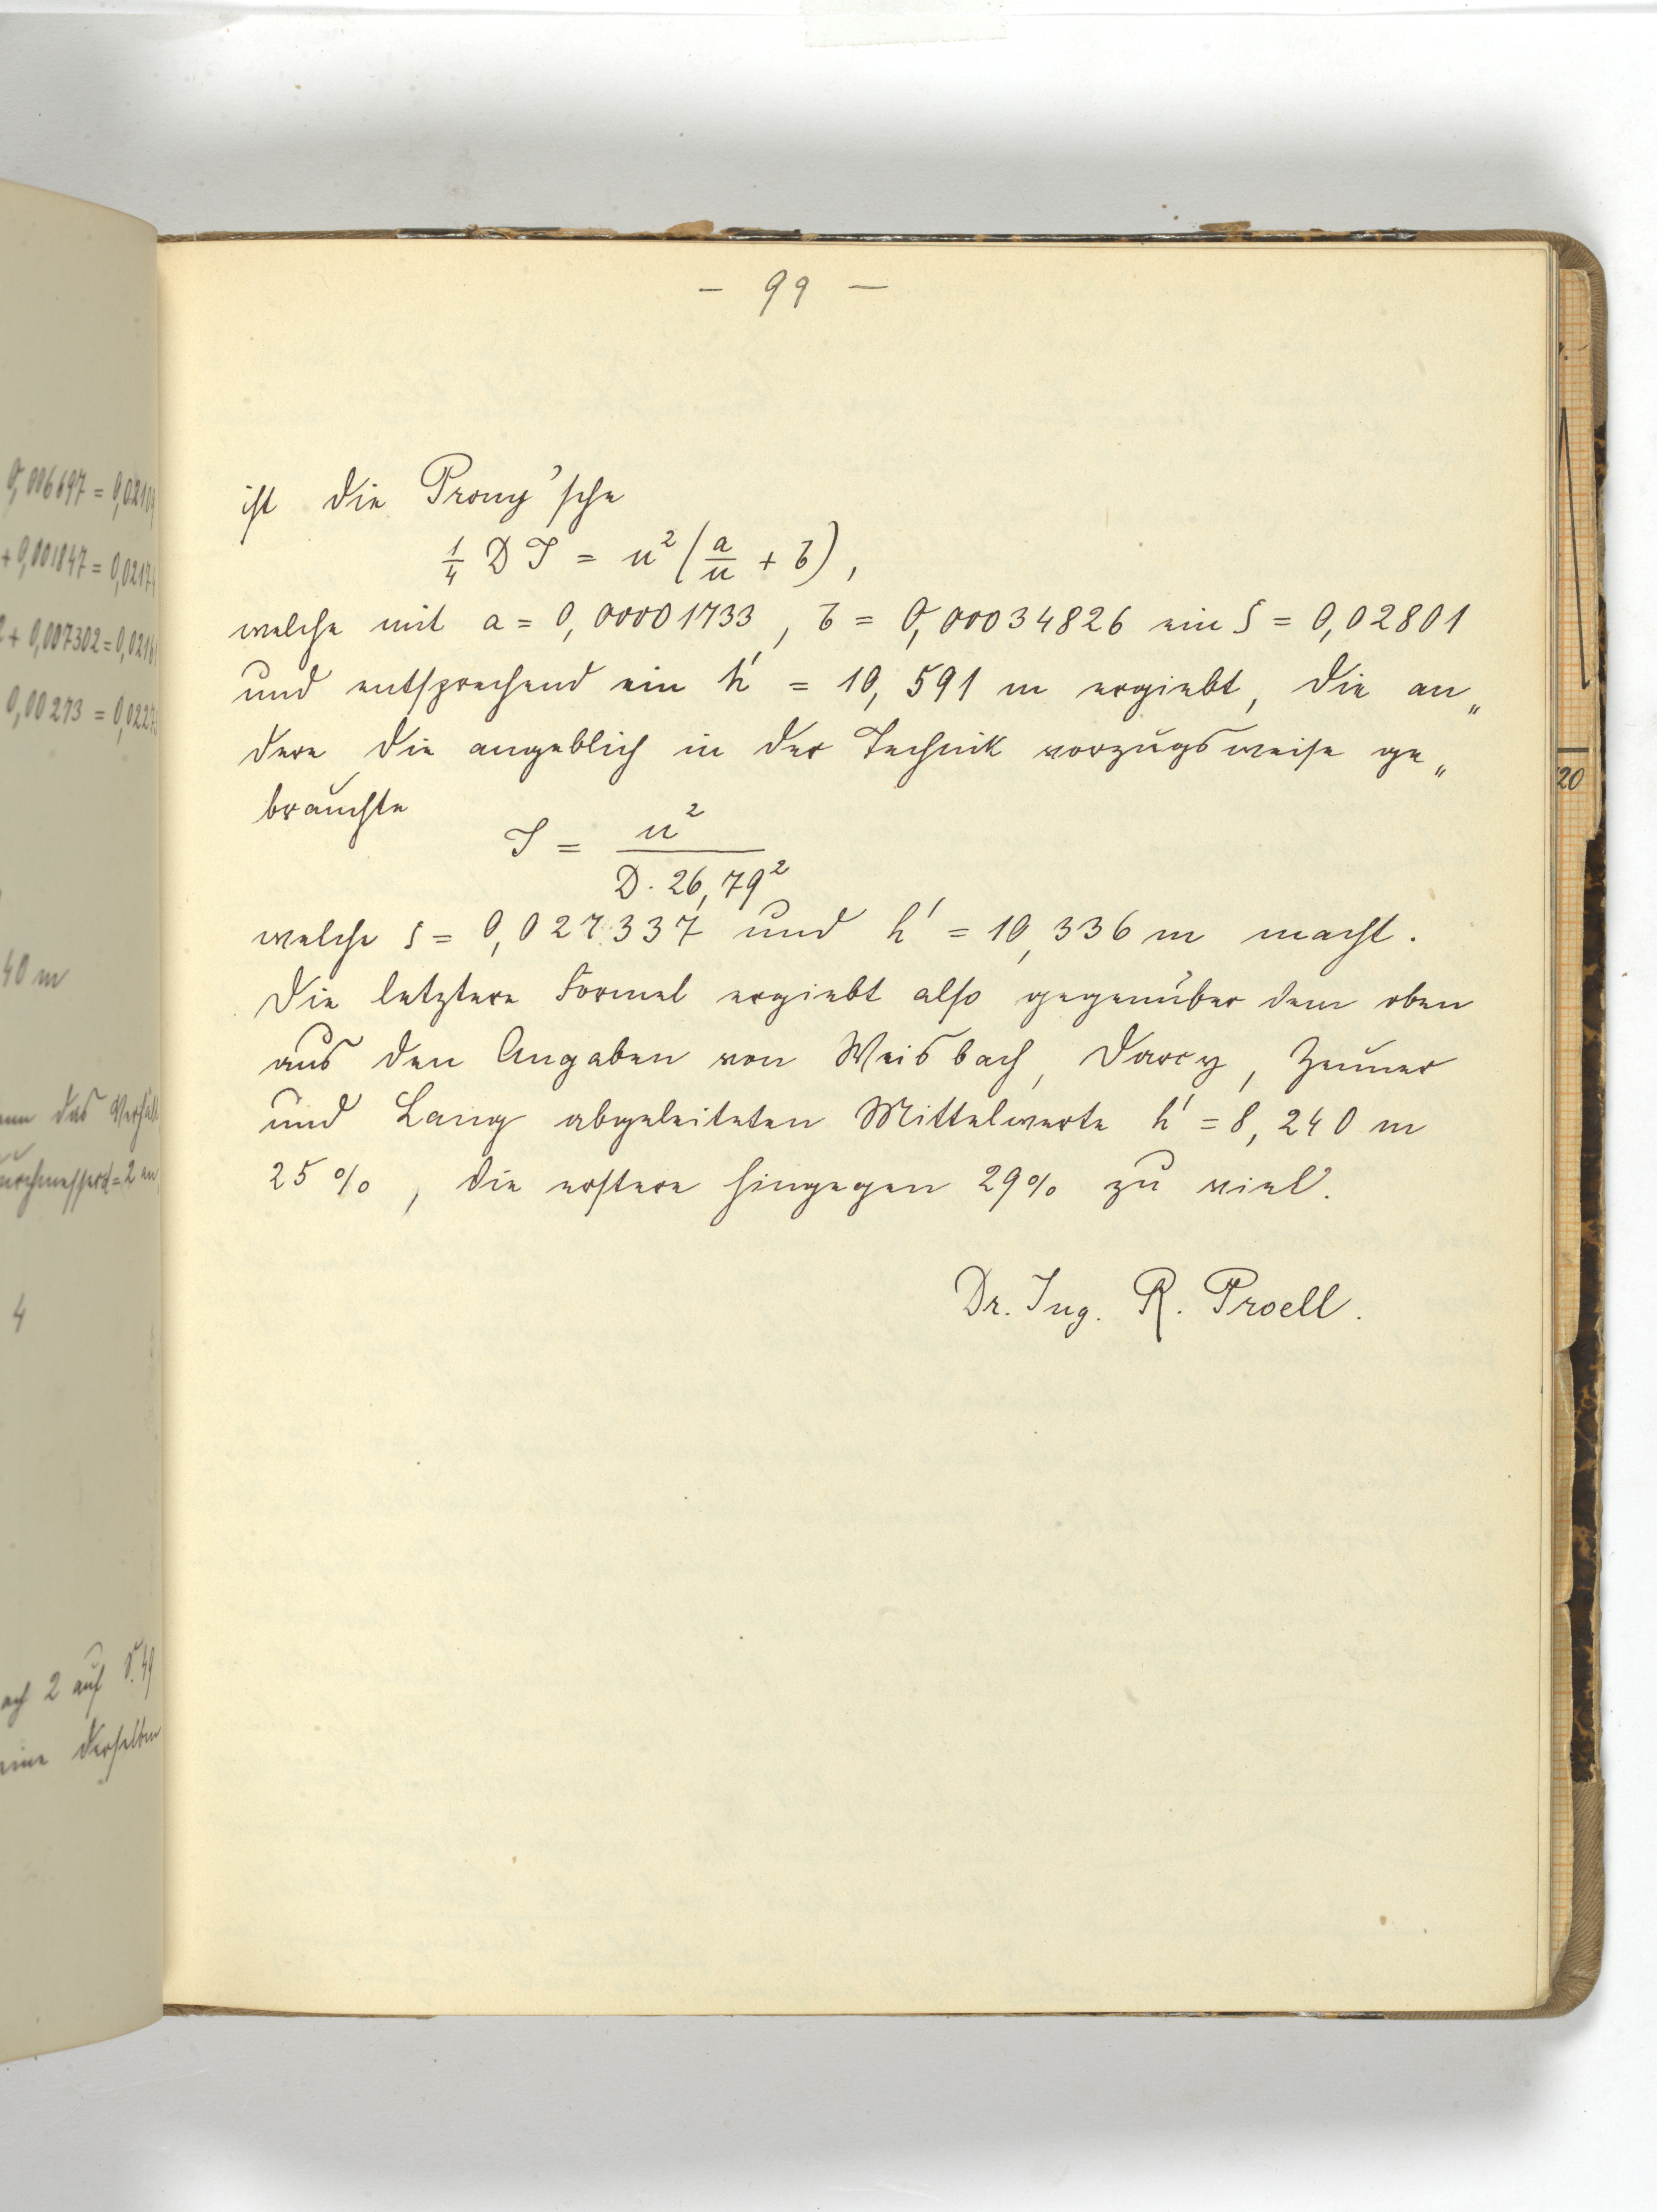 0,006697 = 0,0210
+ 0,001847 = 0,0217
+ 0,007302 = 0,0216
0,00273 = 0,0227
40 m
das
= 2
4
2 auf S. 49
derselben
— 99 —
ist die Prony'sche
1/4 D J = u² (a/u + b),
welche mit a = 0,00001733, b = 0,00034826 ein ζ = 0,02801
und entsprechend ein h' = 10,591 m ergiebt, die an„
dere die angeblich in der Technik vorzugsweise ge„
brauchte
J = u² / D · 26,79²
welche ζ = 0,027337 und h' = 10,336 m macht.
Die letztere Formel ergiebt also gegenüber dem oben
aus den Angaben von Weisbach, Darcy, Zeuner
und Lang abgeleiteten Mittelwerte h' = 8,240 m
25 %, die erstere hingegen 29 % zu viel.
Dr. Ing. R. Proell.
20